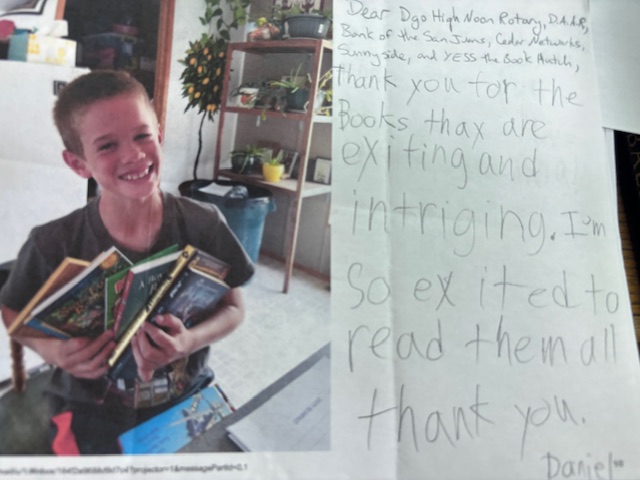 Dear Dgo High Noon Rotary, D.A.R,
Bank of the San Juans, Cedar Networks,
Sunnyside, and YESS the Book Hutch,
thank you for the
Books thax are
exifing and
intriging. I'm
So exited to
read them all
thank you.
Daniel